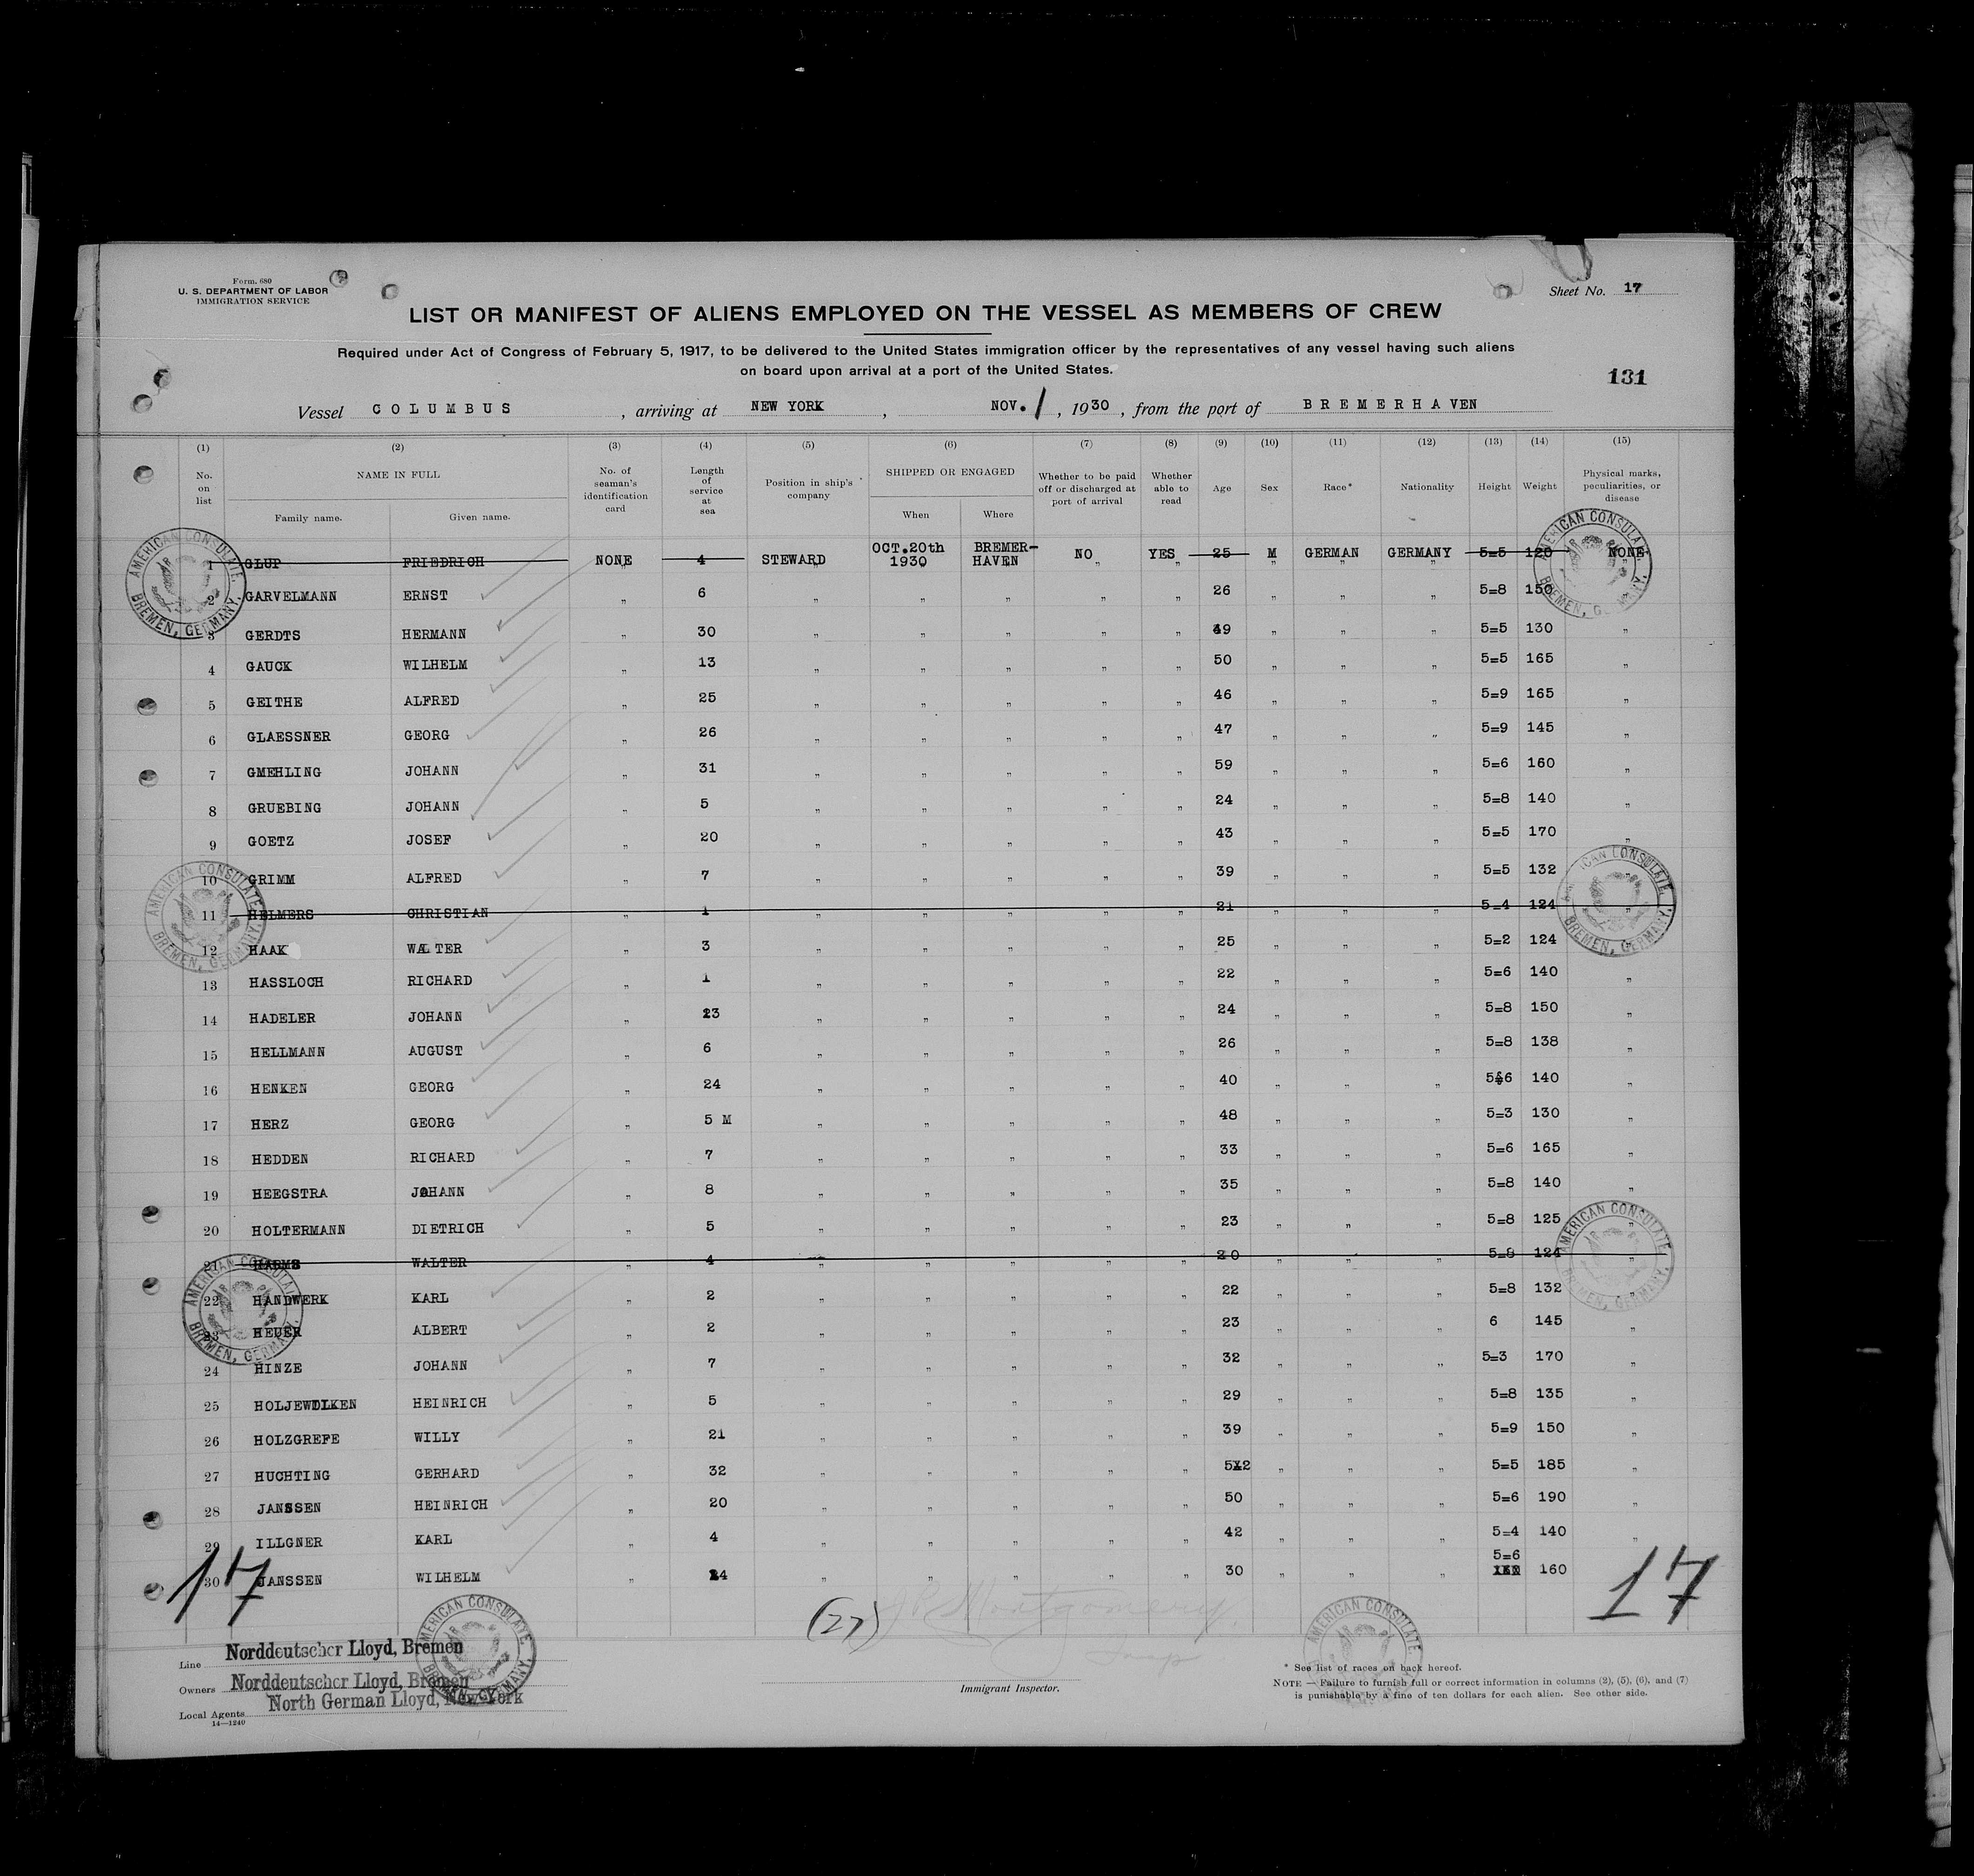 Form. 680
U. S. DEPARTMENT OF LABOR
IMMIGRATION SERVICE
Sheet No. 17
LIST OR MANIFEST OF ALIENS EMPLOYED ON THE VESSEL AS MEMBERS OF CREW
Required under Act of Congress of February 5, 1917, to be delivered to the United States immigration officer by the representatives of any vessel having such aliens
on board upon arrival at a port of the United States.
131
Vessel COLUMBUS, arriving at NEW YORK, NOV. 1, 1930, from the port of BREMERHAVEN
(1) (2) (3) (4) (5) (6) (7) (8) (9) (10) (11) (12) (13) (14) (15)
No. on list NAME IN FULL Family name. Given name. No. of seaman's identification card Length of service at sea Position in ship's company SHIPPED OR ENGAGED When Where Whether to be paid off or discharged at port of arrival Whether able to read Age Sex Race* Nationality Height Weight Physical marks, peculiarities, or disease
1 GLUP FRIEDRICH NONE 4 STEWARD OCT.20th 1930 BREMER-HAVEN NO YES 25 M GERMAN GERMANY 5=5 120 NONE
2 GARVELMANN ERNST " 6 " " " " " 26 " " " 5=8 150 "
3 GERDTS HERMANN " 30 " " " " " 49 " " " 5=5 130 "
4 GAUCK WILHELM " 13 " " " " " 50 " " " 5=5 165 "
5 GEITHE ALFRED " 25 " " " " " 46 " " " 5=9 165 "
6 GLAESSNER GEORG " 26 " " " " " 47 " " " 5=9 145 "
7 GMEHLING JOHANN " 31 " " " " " 59 " " " 5=6 160 "
8 GRUEBING JOHANN " 5 " " " " " 24 " " " 5=8 140 "
9 GOETZ JOSEF " 20 " " " " " 43 " " " 5=5 170 "
10 GRIMM ALFRED " 7 " " " " " 39 " " " 5=5 132 "
11 HELMERS CHRISTIAN " 1 " " " " " 21 " " " 5=4 124 "
12 HAAK WALTER " 3 " " " " " 25 " " " 5=2 124 "
13 HASSLOCH RICHARD " 1 " " " " " 22 " " " 5=6 140 "
14 HADELER JOHANN " 23 " " " " " 24 " " " 5=8 150 "
15 HELLMANN AUGUST " 6 " " " " " 26 " " " 5=8 138 "
16 HENKEN GEORG " 24 " " " " " 40 " " " 5=6 140 "
17 HERZ GEORG " 5 M " " " " " 48 " " " 5=3 130 "
18 HEDDEN RICHARD " 7 " " " " " 33 " " " 5=6 165 "
19 HEEGSTRA JOHANN " 8 " " " " " 35 " " " 5=8 140 "
20 HOLTERMANN DIETRICH " 5 " " " " " 23 " " " 5=8 125 "
21 HARMS WALTER " 4 " " " " " 20 " " " 5=8 124 "
22 HANDWERK KARL " 2 " " " " " 22 " " " 5=8 132 "
23 HEUER ALBERT " 2 " " " " " 23 " " " 6 145 "
24 HINZE JOHANN " 7 " " " " " 32 " " " 5=3 170 "
25 HOLJEWILKEN HEINRICH " 5 " " " " " 29 " " " 5=8 135 "
26 HOLZGREFE WILLY " 21 " " " " " 39 " " " 5=9 150 "
27 HUCHTING GERHARD " 32 " " " " " 52 " " " 5=5 185 "
28 JANSSEN HEINRICH " 20 " " " " " 50 " " " 5=6 190 "
29 ILLGNER KARL " 4 " " " " " 42 " " " 5=4 140 "
30 JANSSEN WILHELM " 14 " " " " " 30 " " " 5=6 160 "
17
17
(27)
Montgomery
Insp
AMERICAN CONSULATE, BREMEN, GERMANY.
Line Norddeutscher Lloyd, Bremen
Owners Norddeutscher Lloyd, Bremen
Local Agents North German Lloyd, New York
14—1240
Immigrant Inspector.
* See list of races on back hereof.
NOTE — Failure to furnish full or correct information in columns (2), (5), (6), and (7)
is punishable by a fine of ten dollars for each alien. See other side.